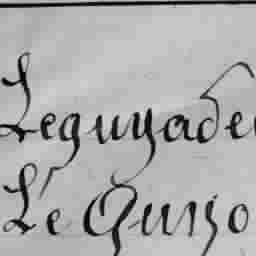 Leguyade
Le Quiyo